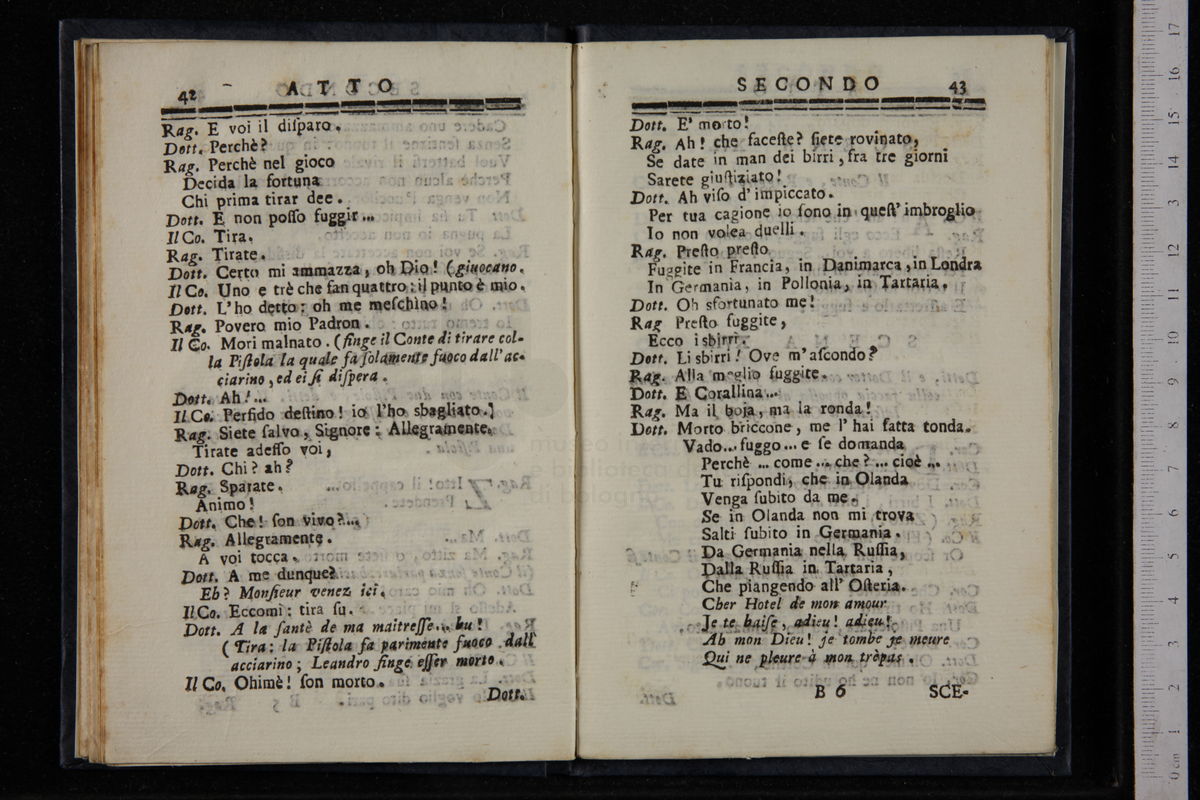 42 ATTO
Rag. E voi il diſparo.
Dott. Perchè?
Rag. Perchè nel gioco
Decida la fortuna
Chi prima tirar dee.
Dott. E non poſſo fuggir...
Il Co. Tira.
Rag. Tirate.
Dott. Certo mi ammazza, oh Dio! (giuocano.
Il Co. Uno e trè che fan quattro: il punto è mio.
Dott. L'ho detto: oh me meſchino!
Rag. Povero mio Padron.
Il Co. Mori malnato. (finge il Conte di tirare col-
la Piſtola la quale fa ſolamente fuoco dall'ac-
ciarino, ed ei ſi diſpera.
Dott. Ah!...
Il Co. Perfido deſtino! io l'ho sbagliato.
Rag. Siete ſalvo, Signore: Allegramente.
Tirate adeſſo voi,
Dott. Chi? ah?
Rag. Sparate.
Animo!
Dott. Che! ſon vivo?...
Rag. Allegramente.
A voi tocca.
Dott. A me dunque?
Eh? Monſieur venez ici.
Il Co. Eccomi: tira ſu.
Dott. A la ſantè de ma maitreſſe... hu!
(Tira: la Piſtola fa parimente fuoco dall'
acciarino; Leandro finge eſſer morto.
Il Co. Ohimè! ſon morto.
Dott.
SECONDO 43
Dott. E' morto!
Rag. Ah! che faceſte? ſiete rovinato,
Se date in man dei birri, fra tre giorni
Sarete giuſtiziato!
Dott. Ah viſo d'impiccato.
Per tua cagione io ſono in queſt'imbroglio
Io non volea duelli.
Rag. Preſto preſto
Fuggite in Francia, in Danimarca, in Londra
In Germania, in Pollonia, in Tartaria.
Dott. Oh sfortunato me!
Rag Preſto fuggite,
Ecco i sbirri.
Dott. Li sbirri! Ove m'aſcondo?
Rag. Alla meglio fuggite.
Dott. E Corallina...
Rag. Ma il boja, ma la ronda!
Dott. Morto briccone, me l'hai fatta tonda.
Vado... fuggo... e ſe domanda
Perchè ... come ... che? ... cioè ...
Tu riſpondi, che in Olanda
Venga ſubito da me.
Se in Olanda non mi trova
Salti ſubito in Germania.
Da Germania nella Ruſſia,
Dalla Ruſſia in Tartaria,
Che piangendo all'Oſteria.
Cher Hotel de mon amour
Je te baiſe, adieu! adieu!
Ah mon Dieu! je tombe je meure
Qui ne pleure à mon trèpas.
B 6 SCE-